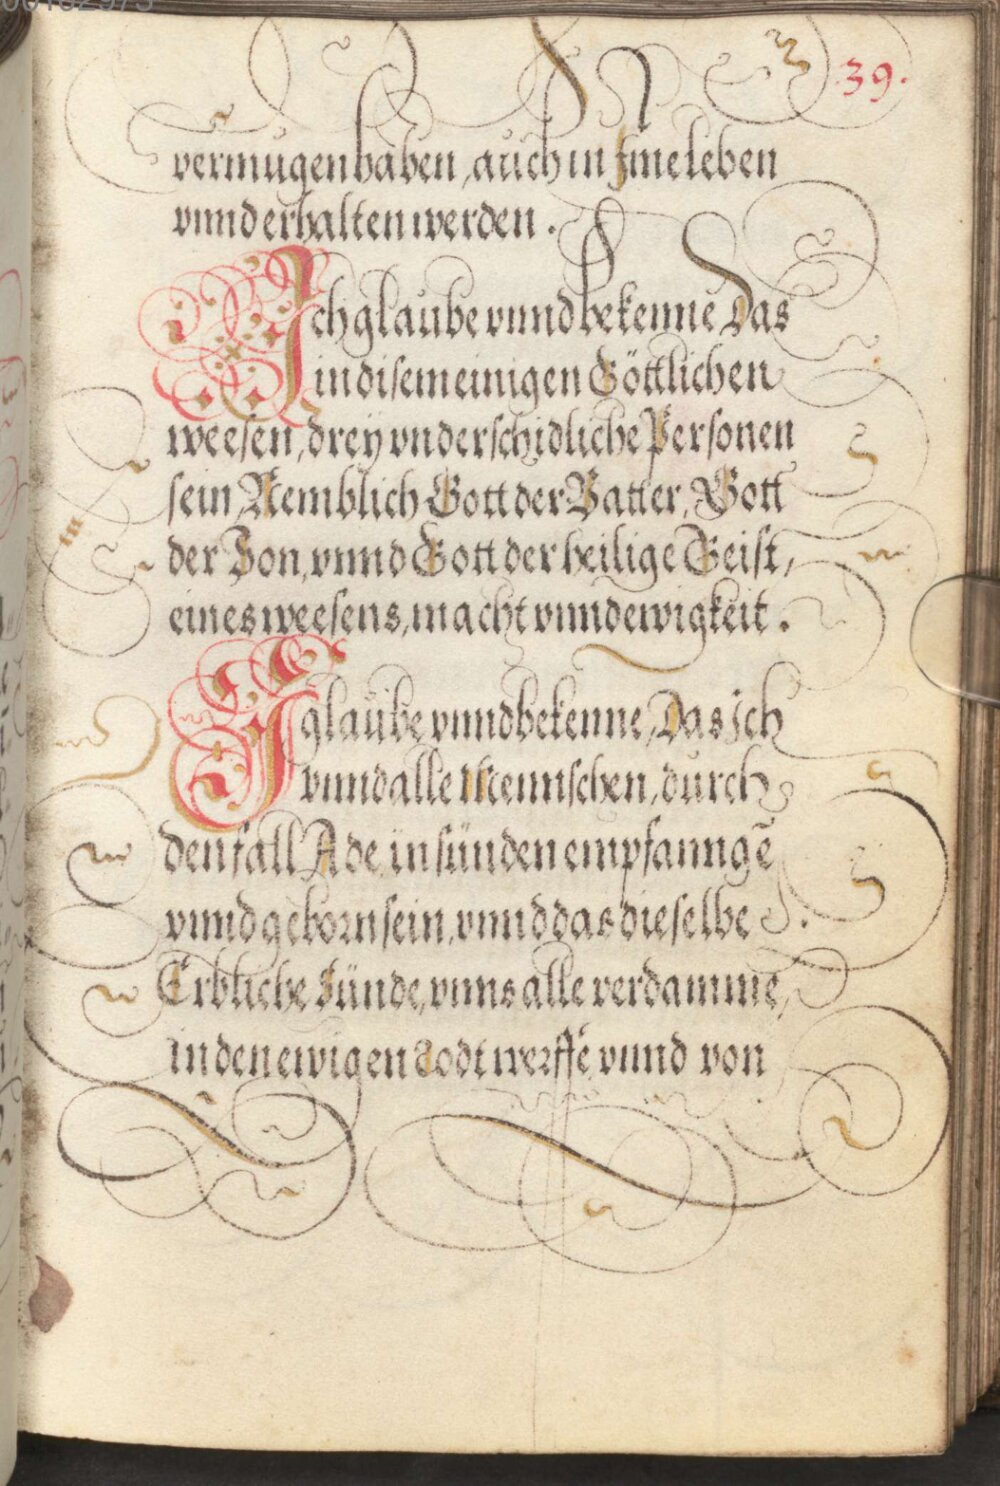 39.
vermugen haben, auch in Ime leben
vnnd erhalten werden.
Ich glaube vnnd bekenne Das
in disem einigen Göttlichen
weesen, drey vnderschidliche Personen
sein, Nemblich Gott der Vatter, Gott
der Son, vnnd Gott der heilige Geist,
eines weesens, macht vnnd ewigkeit.
I glaube vnnd bekenne, Das ich
vnnd alle Mennschen, durch
den fall Ade in sünden empfanngē
vnnd geborn sein, vnnd das dieselbe
Erbliche Sünde, vnns alle verdamme,
in den ewigen Todt werffē vnnd von